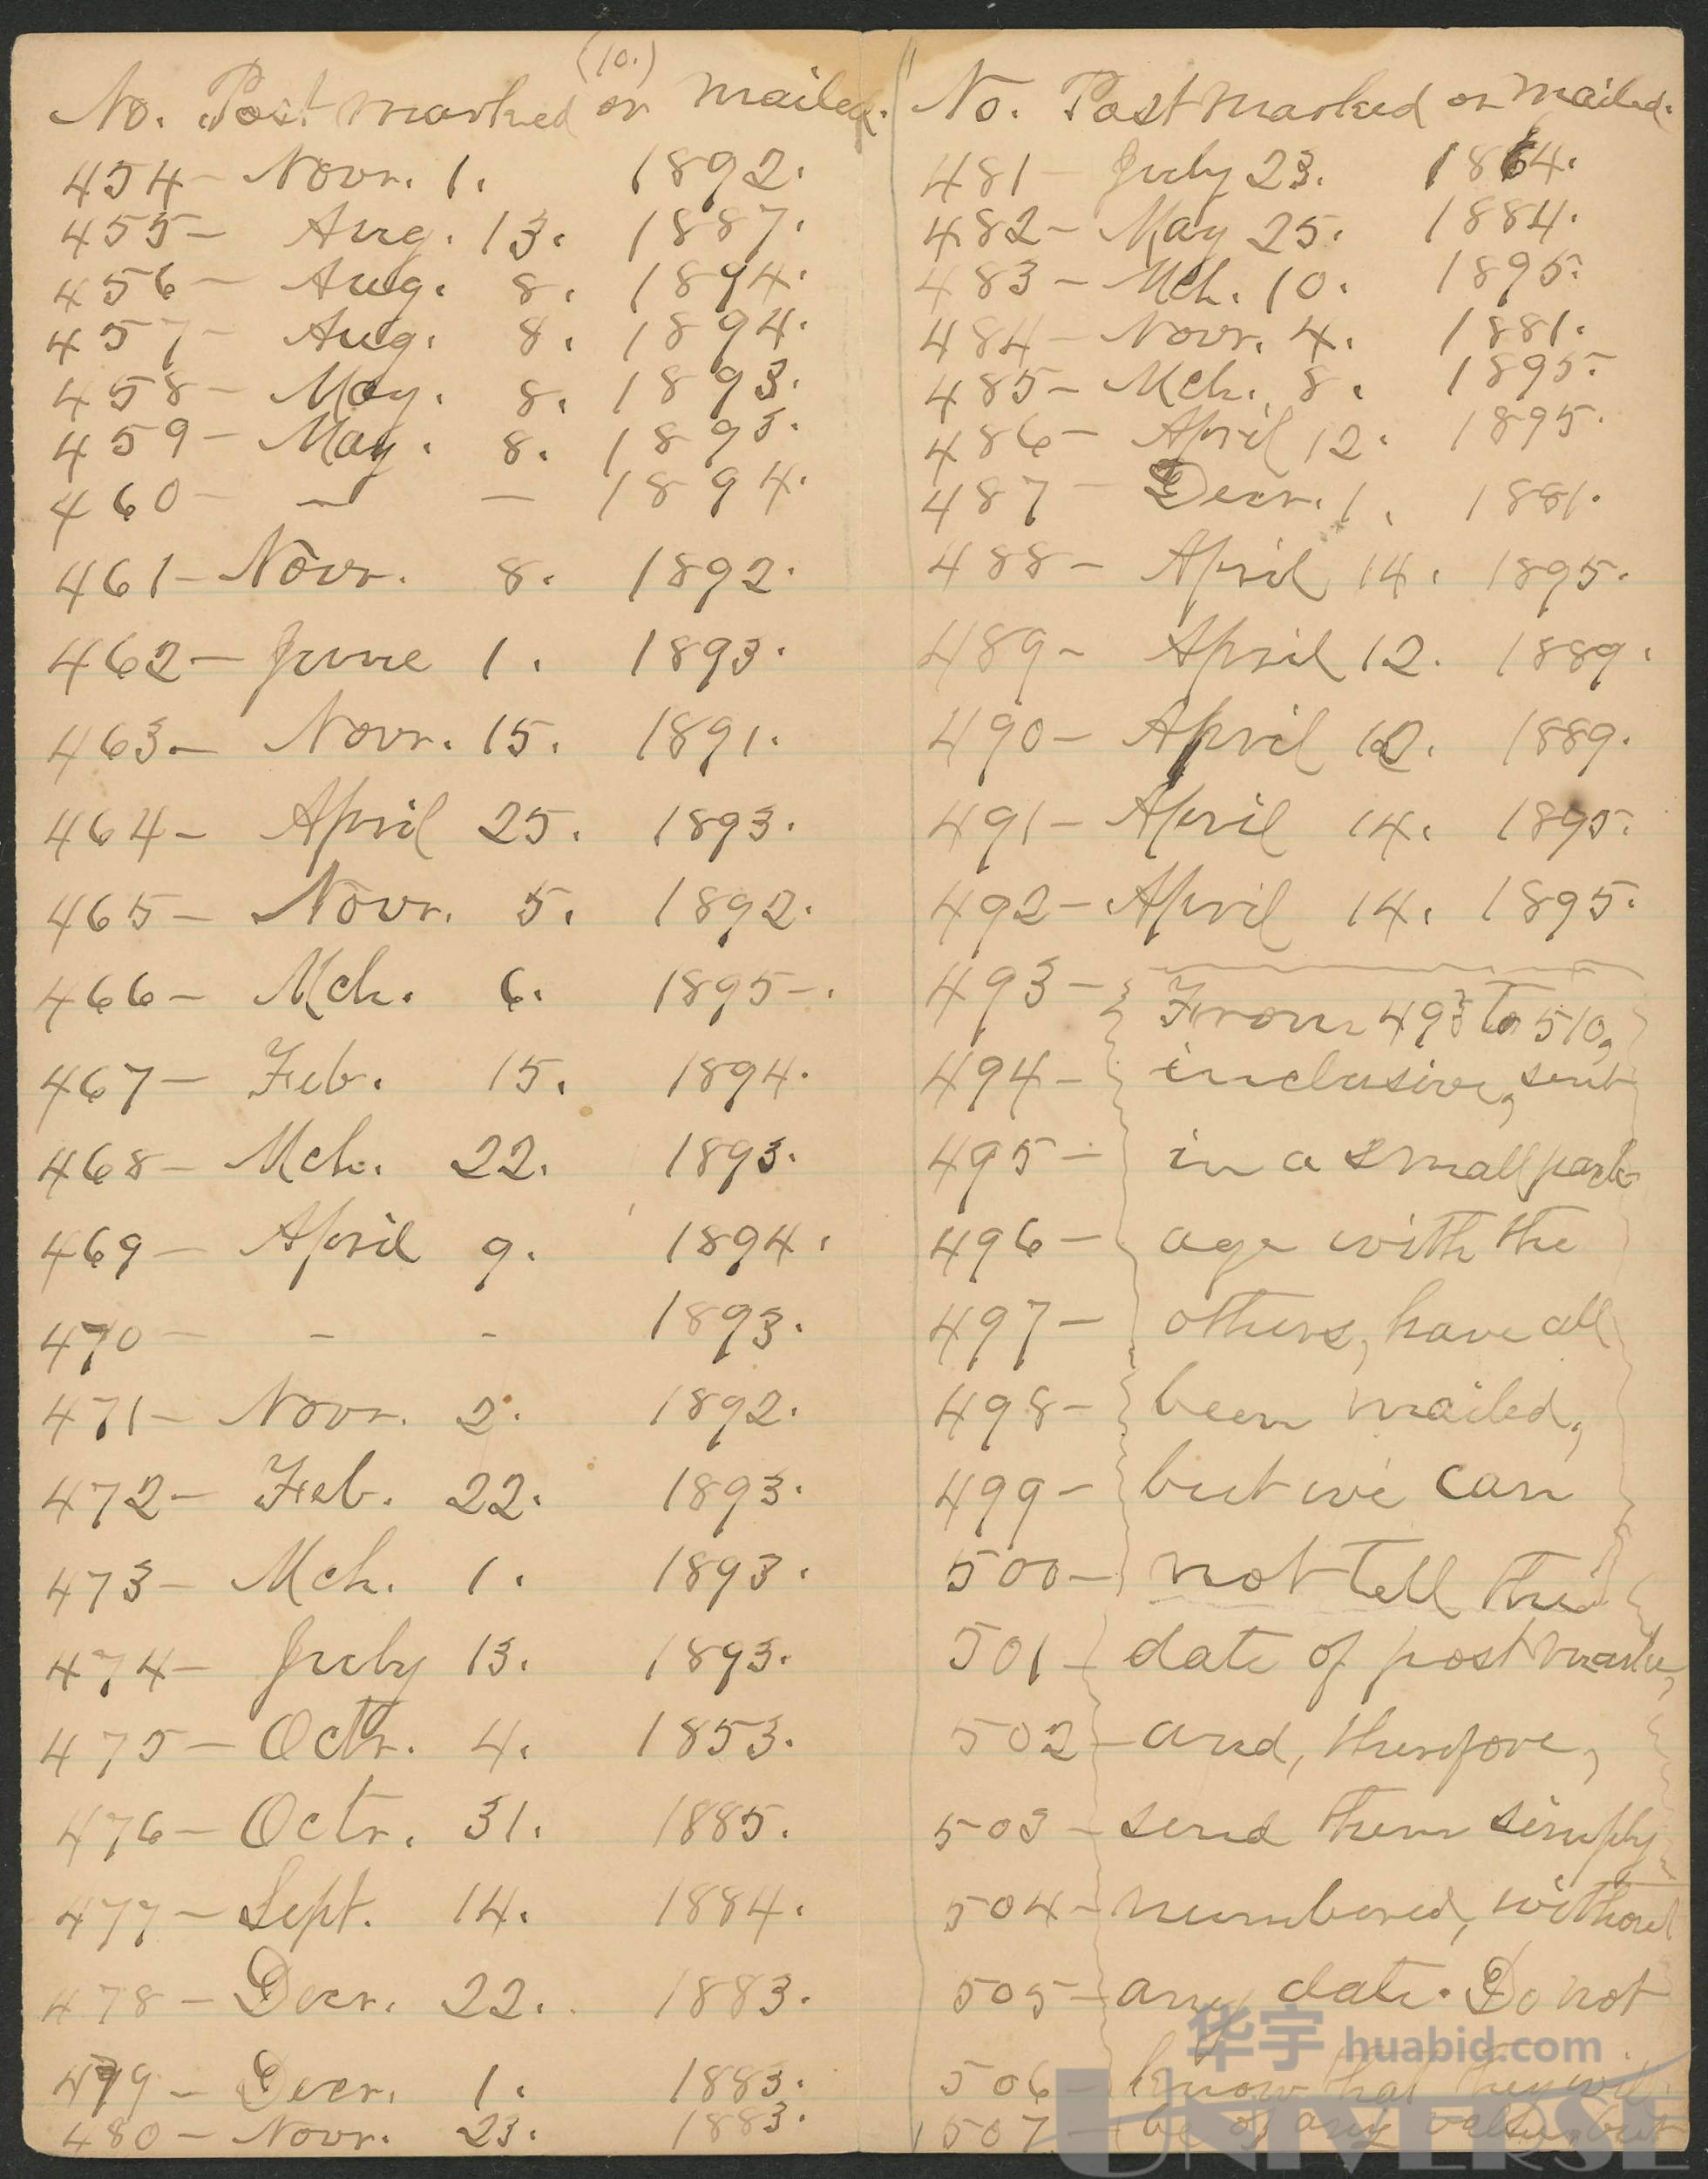 (10.)
No. Post marked or mailed.
454- Novr. 1. 1892.
455- Aug. 13. 1887.
456- Aug. 8. 1894.
457- Aug. 8. 1894.
458- May. 8. 1893.
459- May. 8. 1893.
460- — — 1894.
461- Novr. 8. 1892.
462- June 1. 1893.
463- Novr. 15. 1891.
464- April 25. 1893.
465- Novr. 5. 1892.
466- Mch. 6. 1895-.
467- Feb. 15. 1894.
468- Mch. 22. 1893.
469- April 9. 1894.
470- - - 1893.
471- Novr. 2. 1892.
472- Feb. 22. 1893.
473- Mch. 1. 1893.
474- July 13. 1893.
475- Octr. 4. 1853.
476- Octr. 31. 1885.
477- Sept. 14. 1884.
478- Decr. 22. 1883.
479- Decr. 1. 1883.
480- Novr. 23. 1883.
No. Post marked or mailed.
481- July 23. 1864.
482- May 25. 1884.
483- Mch. 10. 1895.
484- Novr. 4. 1881.
485- Mch. 8. 1895.
486- April 12. 1895.
487- Decr. 1. 1881.
488- April 14. 1895.
489- April 12. 1889.
490- April 12. 1889.
491- April 14. 1895.
492- April 14. 1895.
493- From 493 to 510,
494- inclusive, sent
495- in a small pack-
496- age with the
497- others, have all
498- been mailed,
499- but we can
500- not tell the
501- date of post mark,
502- and, therefore,
503- send them simply
504- numbered, without
505- any date. Do not
506- know that they will
507- be of any value, but
华宇 huabid.com
UNIVERSE